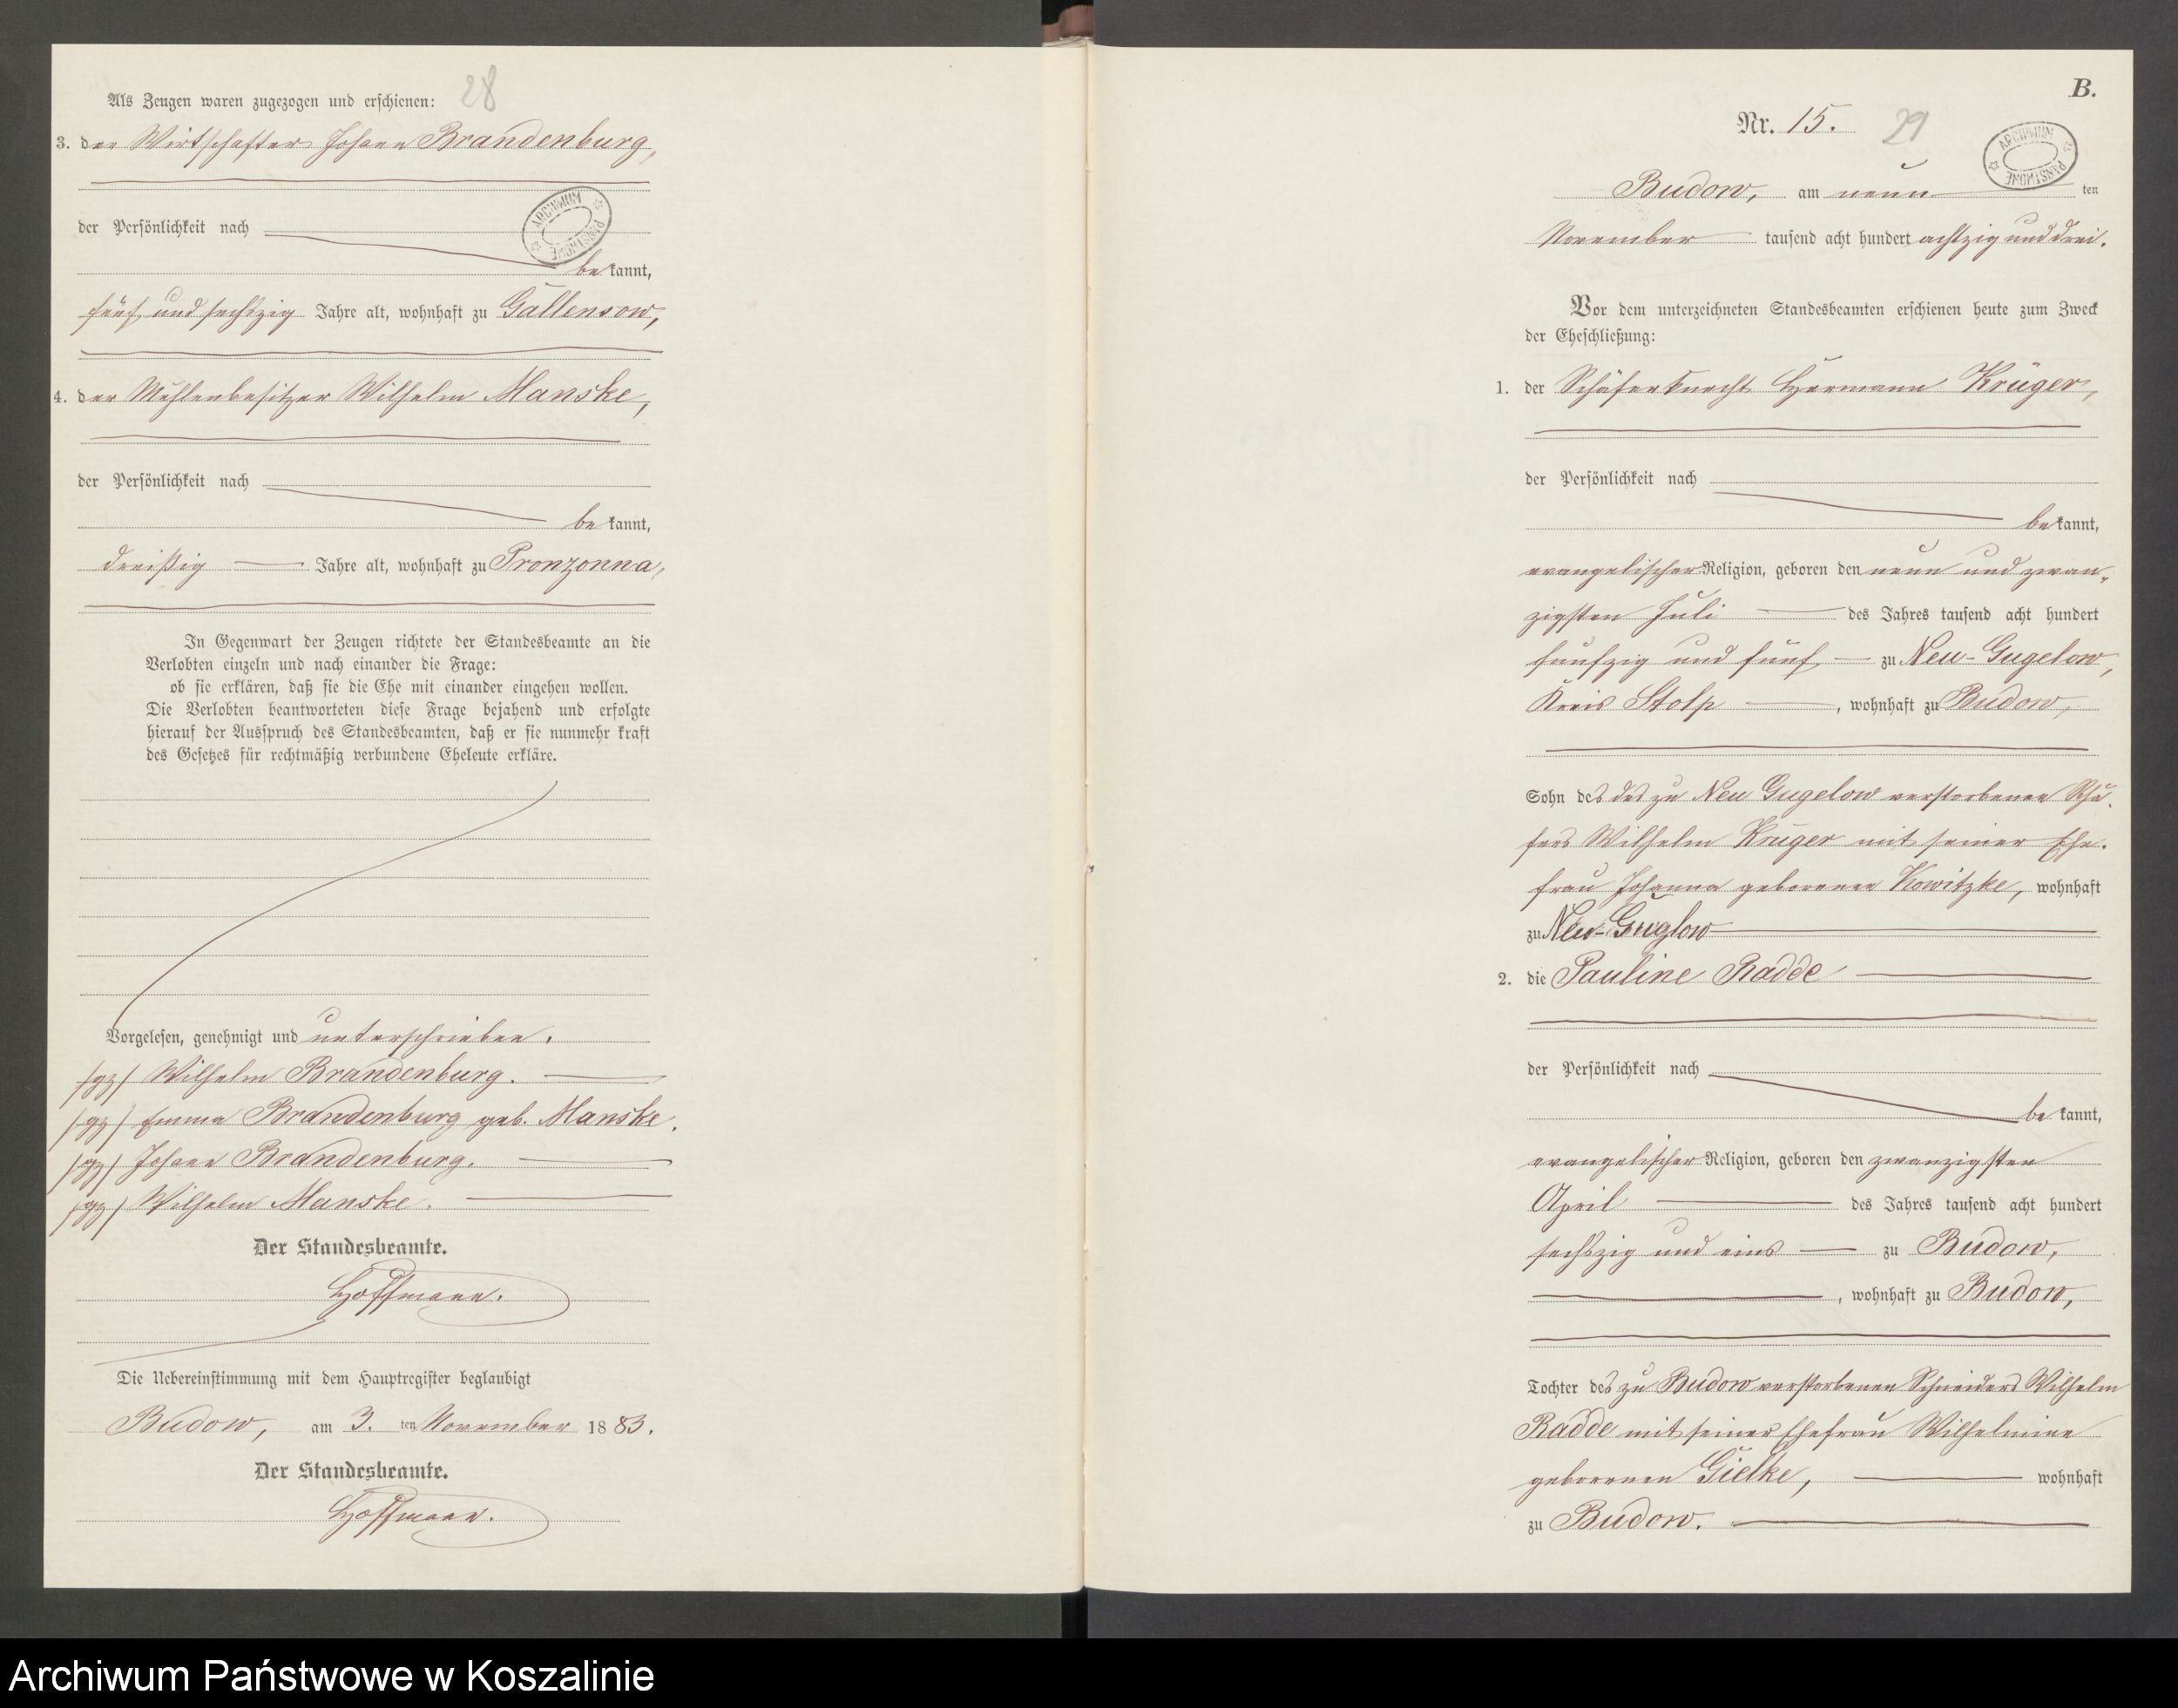 28
Als Zeugen waren zugezogen und erschienen:
3. der Wirtschafter Johann Brandenburg,
ARCHIWUM PAŃSTWOWE
der Persönlichkeit nach
bekannt,
fünf und sechszig Jahre alt, wohnhaft zu Gallensow,
4. der Mühlenbesitzer Wilhelm Manske,
der Persönlichkeit nach
bekannt,
dreißig Jahre alt, wohnhaft zu Pronzonna,
In Gegenwart der Zeugen richtete der Standesbeamte an die
Verlobten einzeln und nach einander die Frage:
ob sie erklären, daß sie die Ehe mit einander eingehen wollen.
Die Verlobten beantworteten diese Frage bejahend und erfolgte
hierauf der Ausspruch des Standesbeamten, daß er sie nunmehr kraft
des Gesetzes für rechtmäßig verbundene Eheleute erkläre.
Vorgelesen, genehmigt und unterschrieben.
/gz/ Wilhelm Brandenburg.
/gz/ Emma Brandenburg geb. Manske.
/gz/ Johann Brandenburg.
/gz/ Wilhelm Manske.
Der Standesbeamte.
Hoffmann.
Die Uebereinstimmung mit dem Hauptregister beglaubigt
Budow, am 3. ten November 1883.
Der Standesbeamte.
Hoffmann.
B.
Nr. 15. 29
ARCHIWUM PAŃSTWOWE
Budow, am neun ten
November tausend acht hundert achtzig und drei.
Vor dem unterzeichneten Standesbeamten erschienen heute zum Zweck
der Eheschließung:
1. der Schäferknecht Hermann Krüger,
der Persönlichkeit nach
bekannt,
evangelischer Religion, geboren den neun und zwan-
zigsten Juli des Jahres tausend acht hundert
fünfzig und fünf zu Neu-Gugelow,
Kreis Stolp, wohnhaft zu Budow,
Sohn des des zu Neu Gugelow verstorbenen Schä-
fers Wilhelm Krüger mit seiner Ehe-
frau Johanna geborenen Kowitzke, wohnhaft
zu Neu-Guglow
2. die Pauline Radde
der Persönlichkeit nach
bekannt,
evangelischer Religion, geboren den zwanzigsten
April des Jahres tausend acht hundert
sechszig und eins zu Budow,
, wohnhaft zu Budow,
Tochter des zu Budow verstorbenen Schneiders Wilhelm
Radde mit seiner Ehefrau Wilhelmine
geborenen Gielke, wohnhaft
zu Budow.
Archiwum Państwowe w Koszalinie